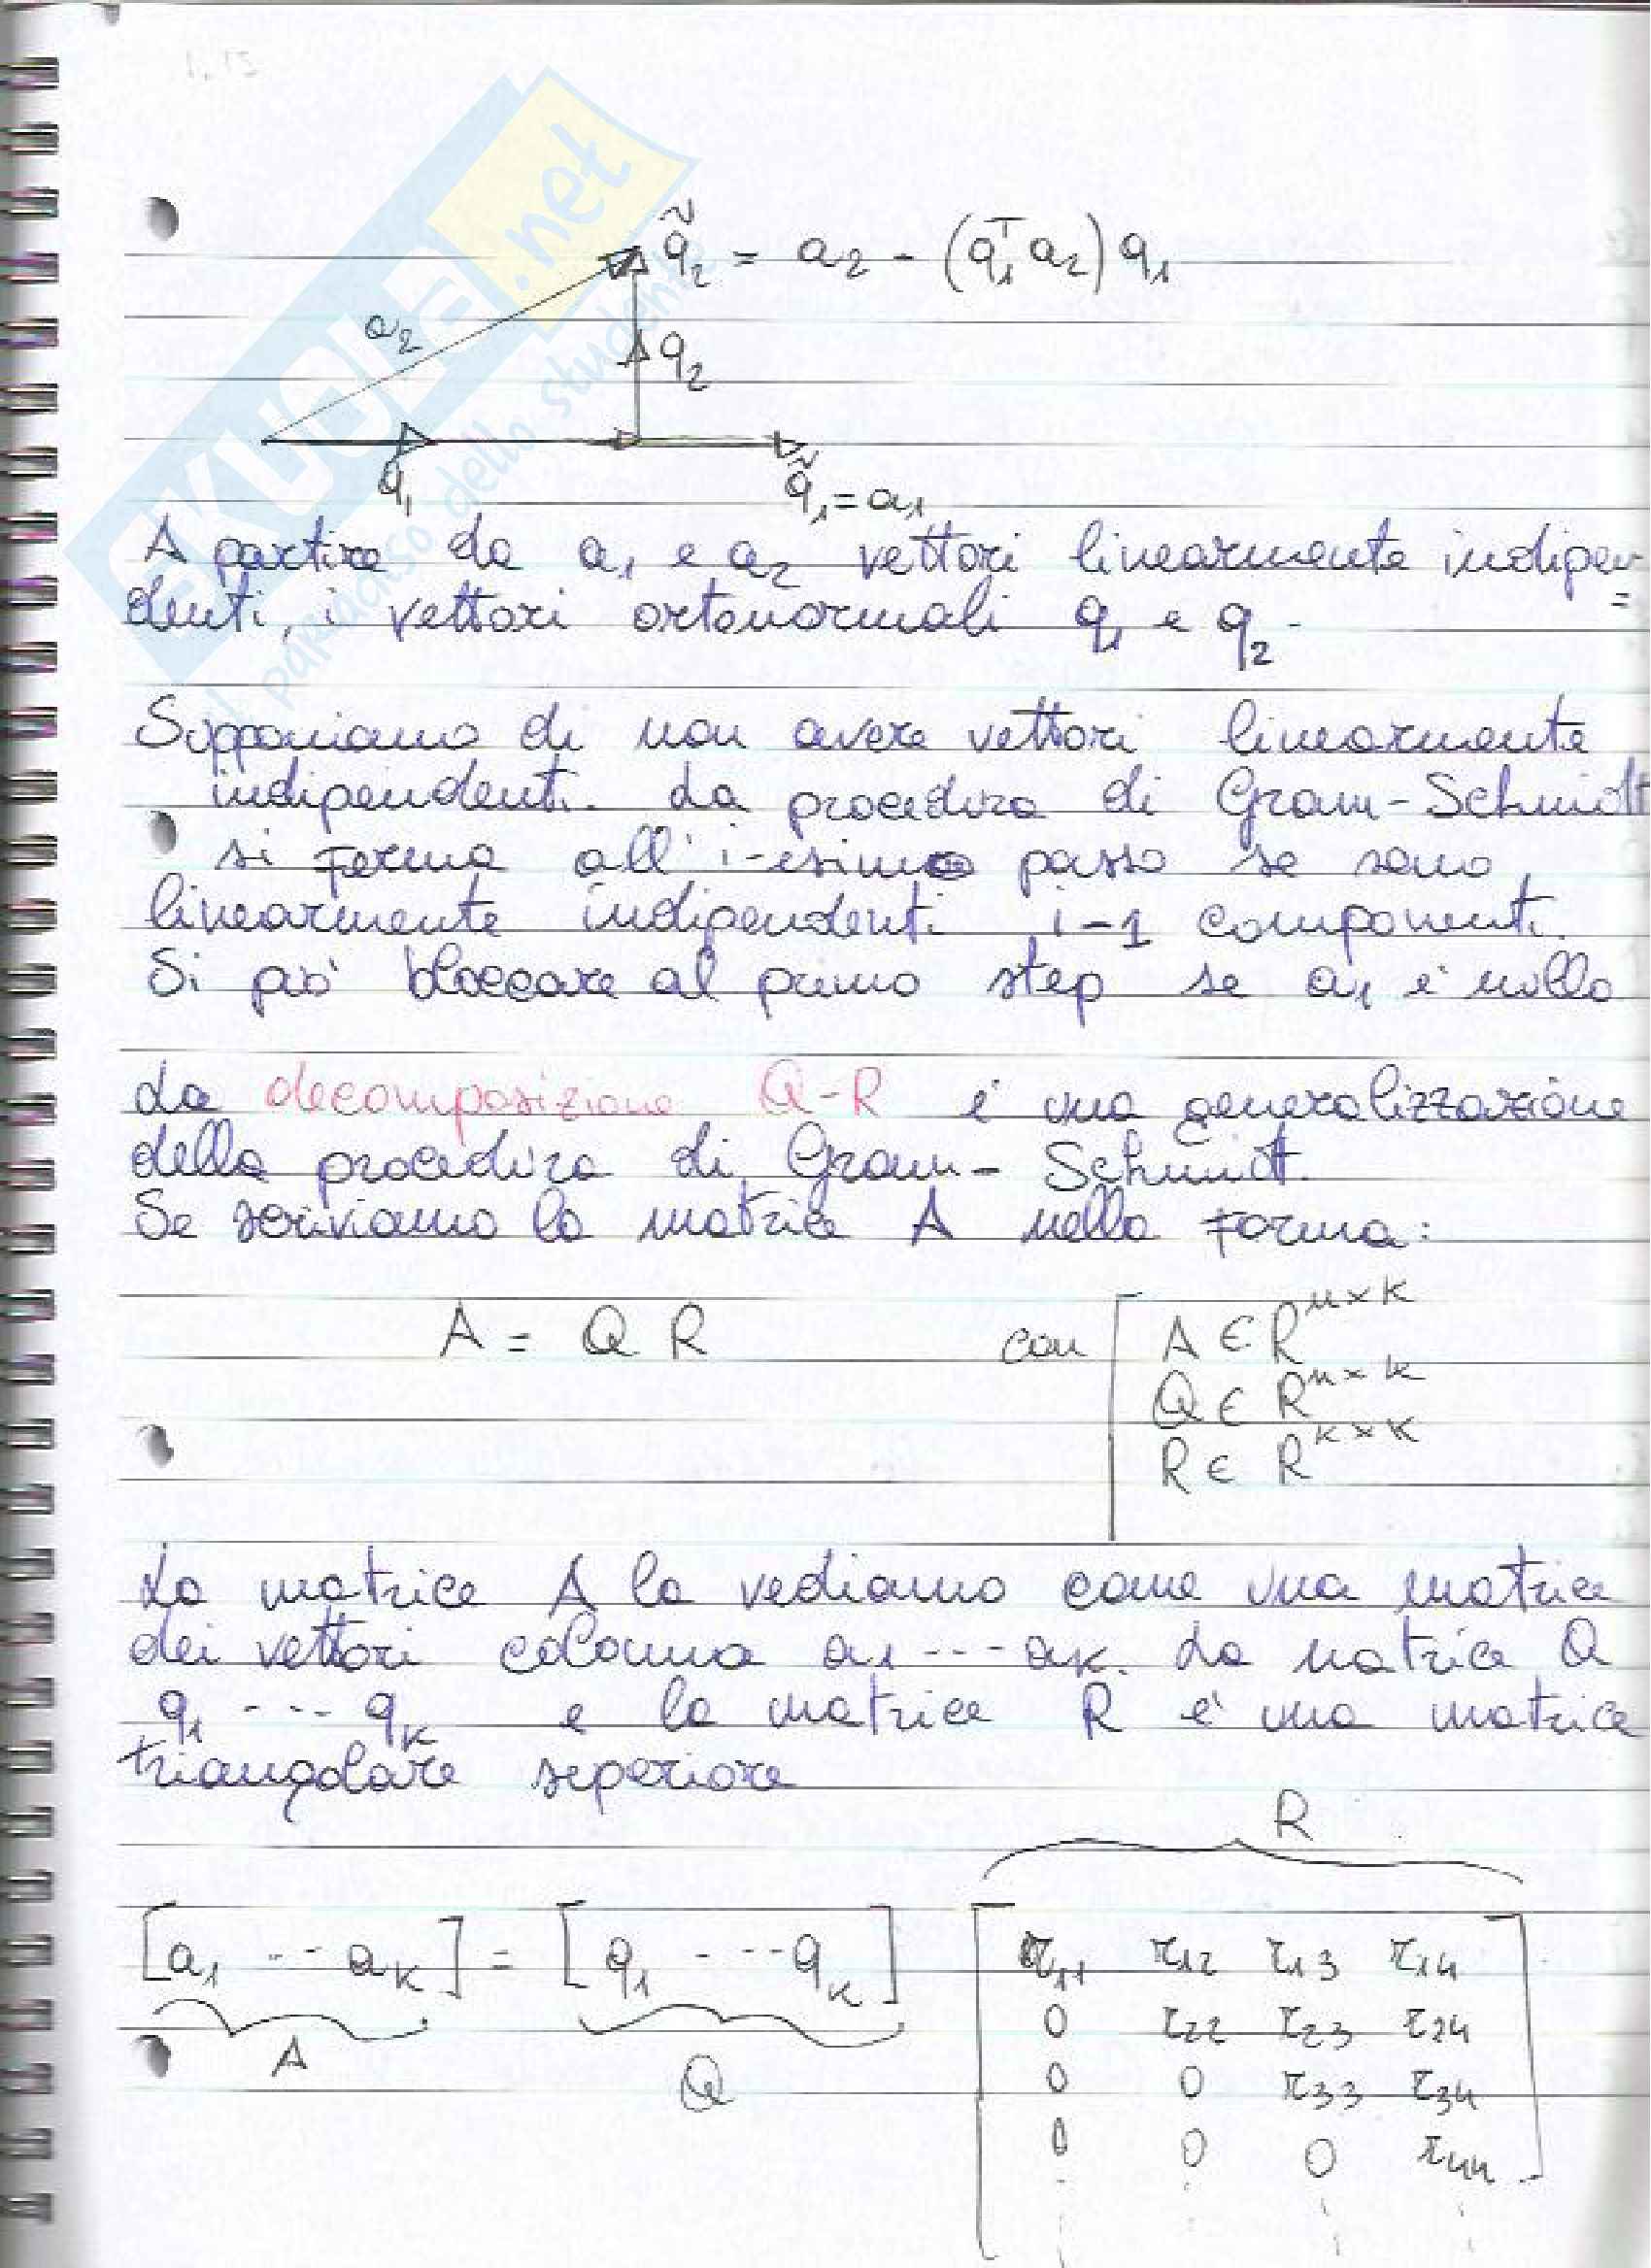 1.15
q̃₂ = a₂ - (q₁ᵀ a₂) q₁
a₂
q₂
q₁
q̃₁ = a₁
A partire da a₁ e a₂ vettori linearmente indipen=
denti, i vettori ortonormali q₁ e q₂.
Supponiamo di non avere vettori linearmente
indipendenti. La procedura di Gram-Schmidt
si ferma all'i-esimo passo se sono
linearmente indipendenti i-1 componenti.
Si può bloccare al primo step se a₁ è nullo
La decomposizione Q-R è una generalizzazione
della procedura di Gram-Schmidt.
Se scriviamo la matrice A nella forma:
A = Q R con [ A ∈ Rⁿˣᴷ
Q ∈ Rⁿˣᴷ
R ∈ Rᴷˣᴷ
La matrice A la vediamo come una matrice
dei vettori colonna a₁ --- aₖ. La matrice Q
q₁ --- qₖ e la matrice R è una matrice
triangolare superiore
R
[a₁ --- aₖ] = [q₁ --- qₖ] [ r₁₁ r₁₂ r₁₃ r₁₄
0 r₂₂ r₂₃ r₂₄
0 0 r₃₃ r₃₄
0 0 0 r₄₄ ]
A
Q
SKUOLA.net
il paradiso dello studente